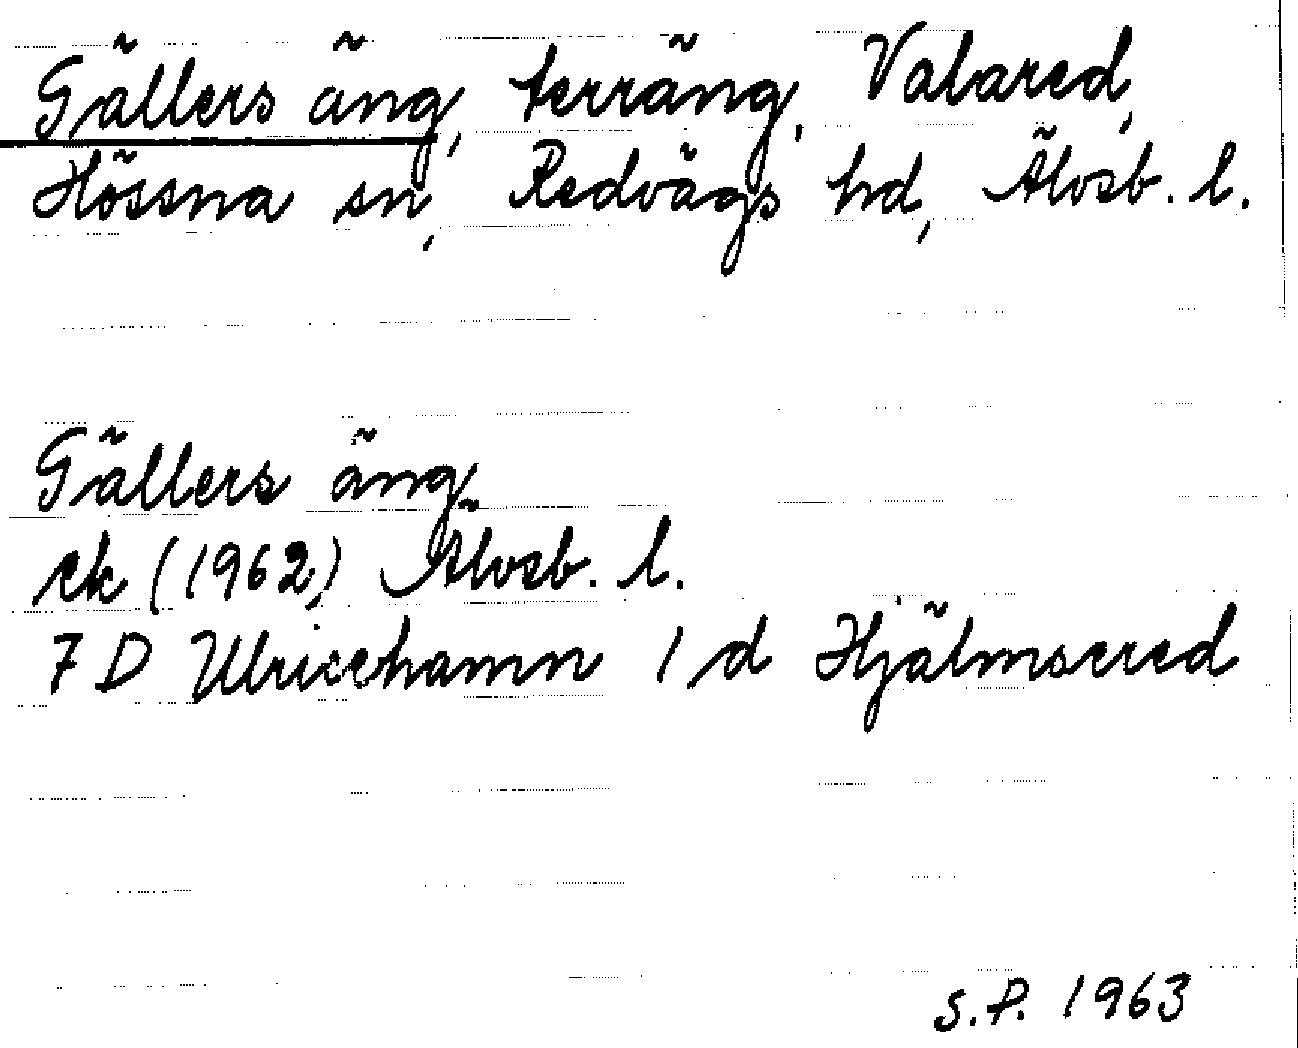 Gällers äng, terräng, Valared,
Hössna sn, Redvägs hd, Älvsb. l.
Gällers äng
ek (1962) Älvsb. l.
7 D Ulricehamn 1 d Hjälmsered
S.P. 1963